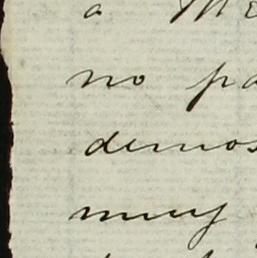 a Me
no pa
demos
muy